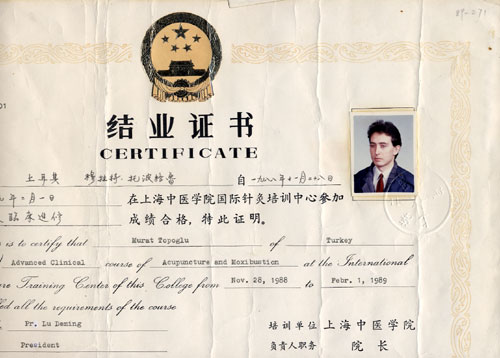 89-271
01
结业证书
CERTIFICATE
土耳其 穆拉特·托波格鲁 自一九八八年十一月二十八日
九年二月一日 在上海中医学院国际针灸培训中心参加
临床进修 成绩合格,特此证明。
is to certify that Murat Topoglu of Turkey
Advanced Clinical course of Acupuncture and Moxibustion at the International
re Training Center of this College from Nov. 28, 1988 to Febr. 1, 1989
lled all the requirements of the course
Pr. Lu Deming 培训单位 上海中医学院
President 负责人职务 院长